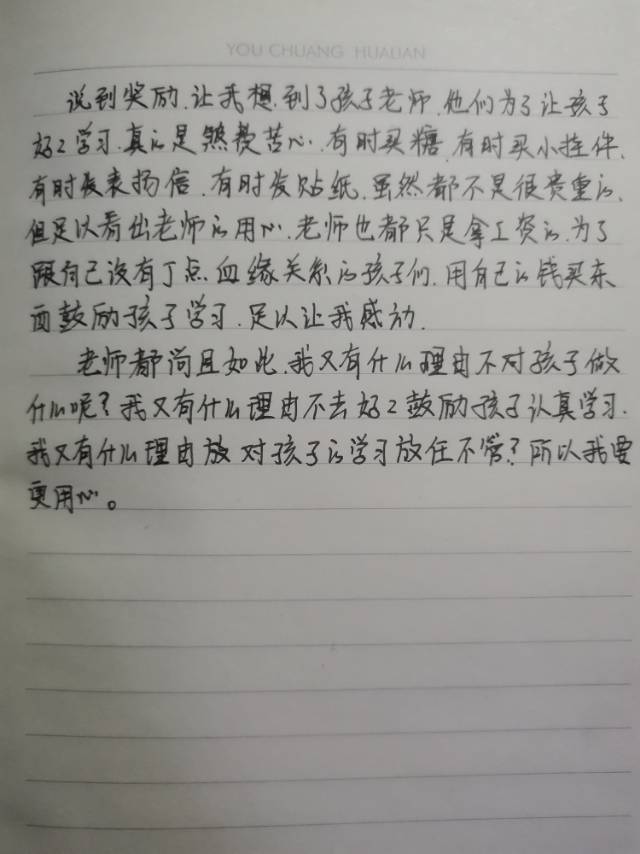 YOU CHUANG HUALIAN
说到奖励,让我想到了孩子老师.他们为了让孩子
好好学习.真的是煞费苦心.有时买糖.有时买小挂件.
有时发表扬信.有时发贴纸.虽然都不是很贵重的.
但足以看出老师的用心.老师也都只是拿工资的.为了
跟自己没有丁点血缘关系的孩子们.用自己的钱买东
西鼓励孩子学习.足以让我感动.
老师都尚且如此.我又有什么理由不对孩子做
什么呢?我又有什么理由不去好好鼓励孩子认真学习.
我又有什么理由放对孩子的学习放任不管?所以我要
更用心。